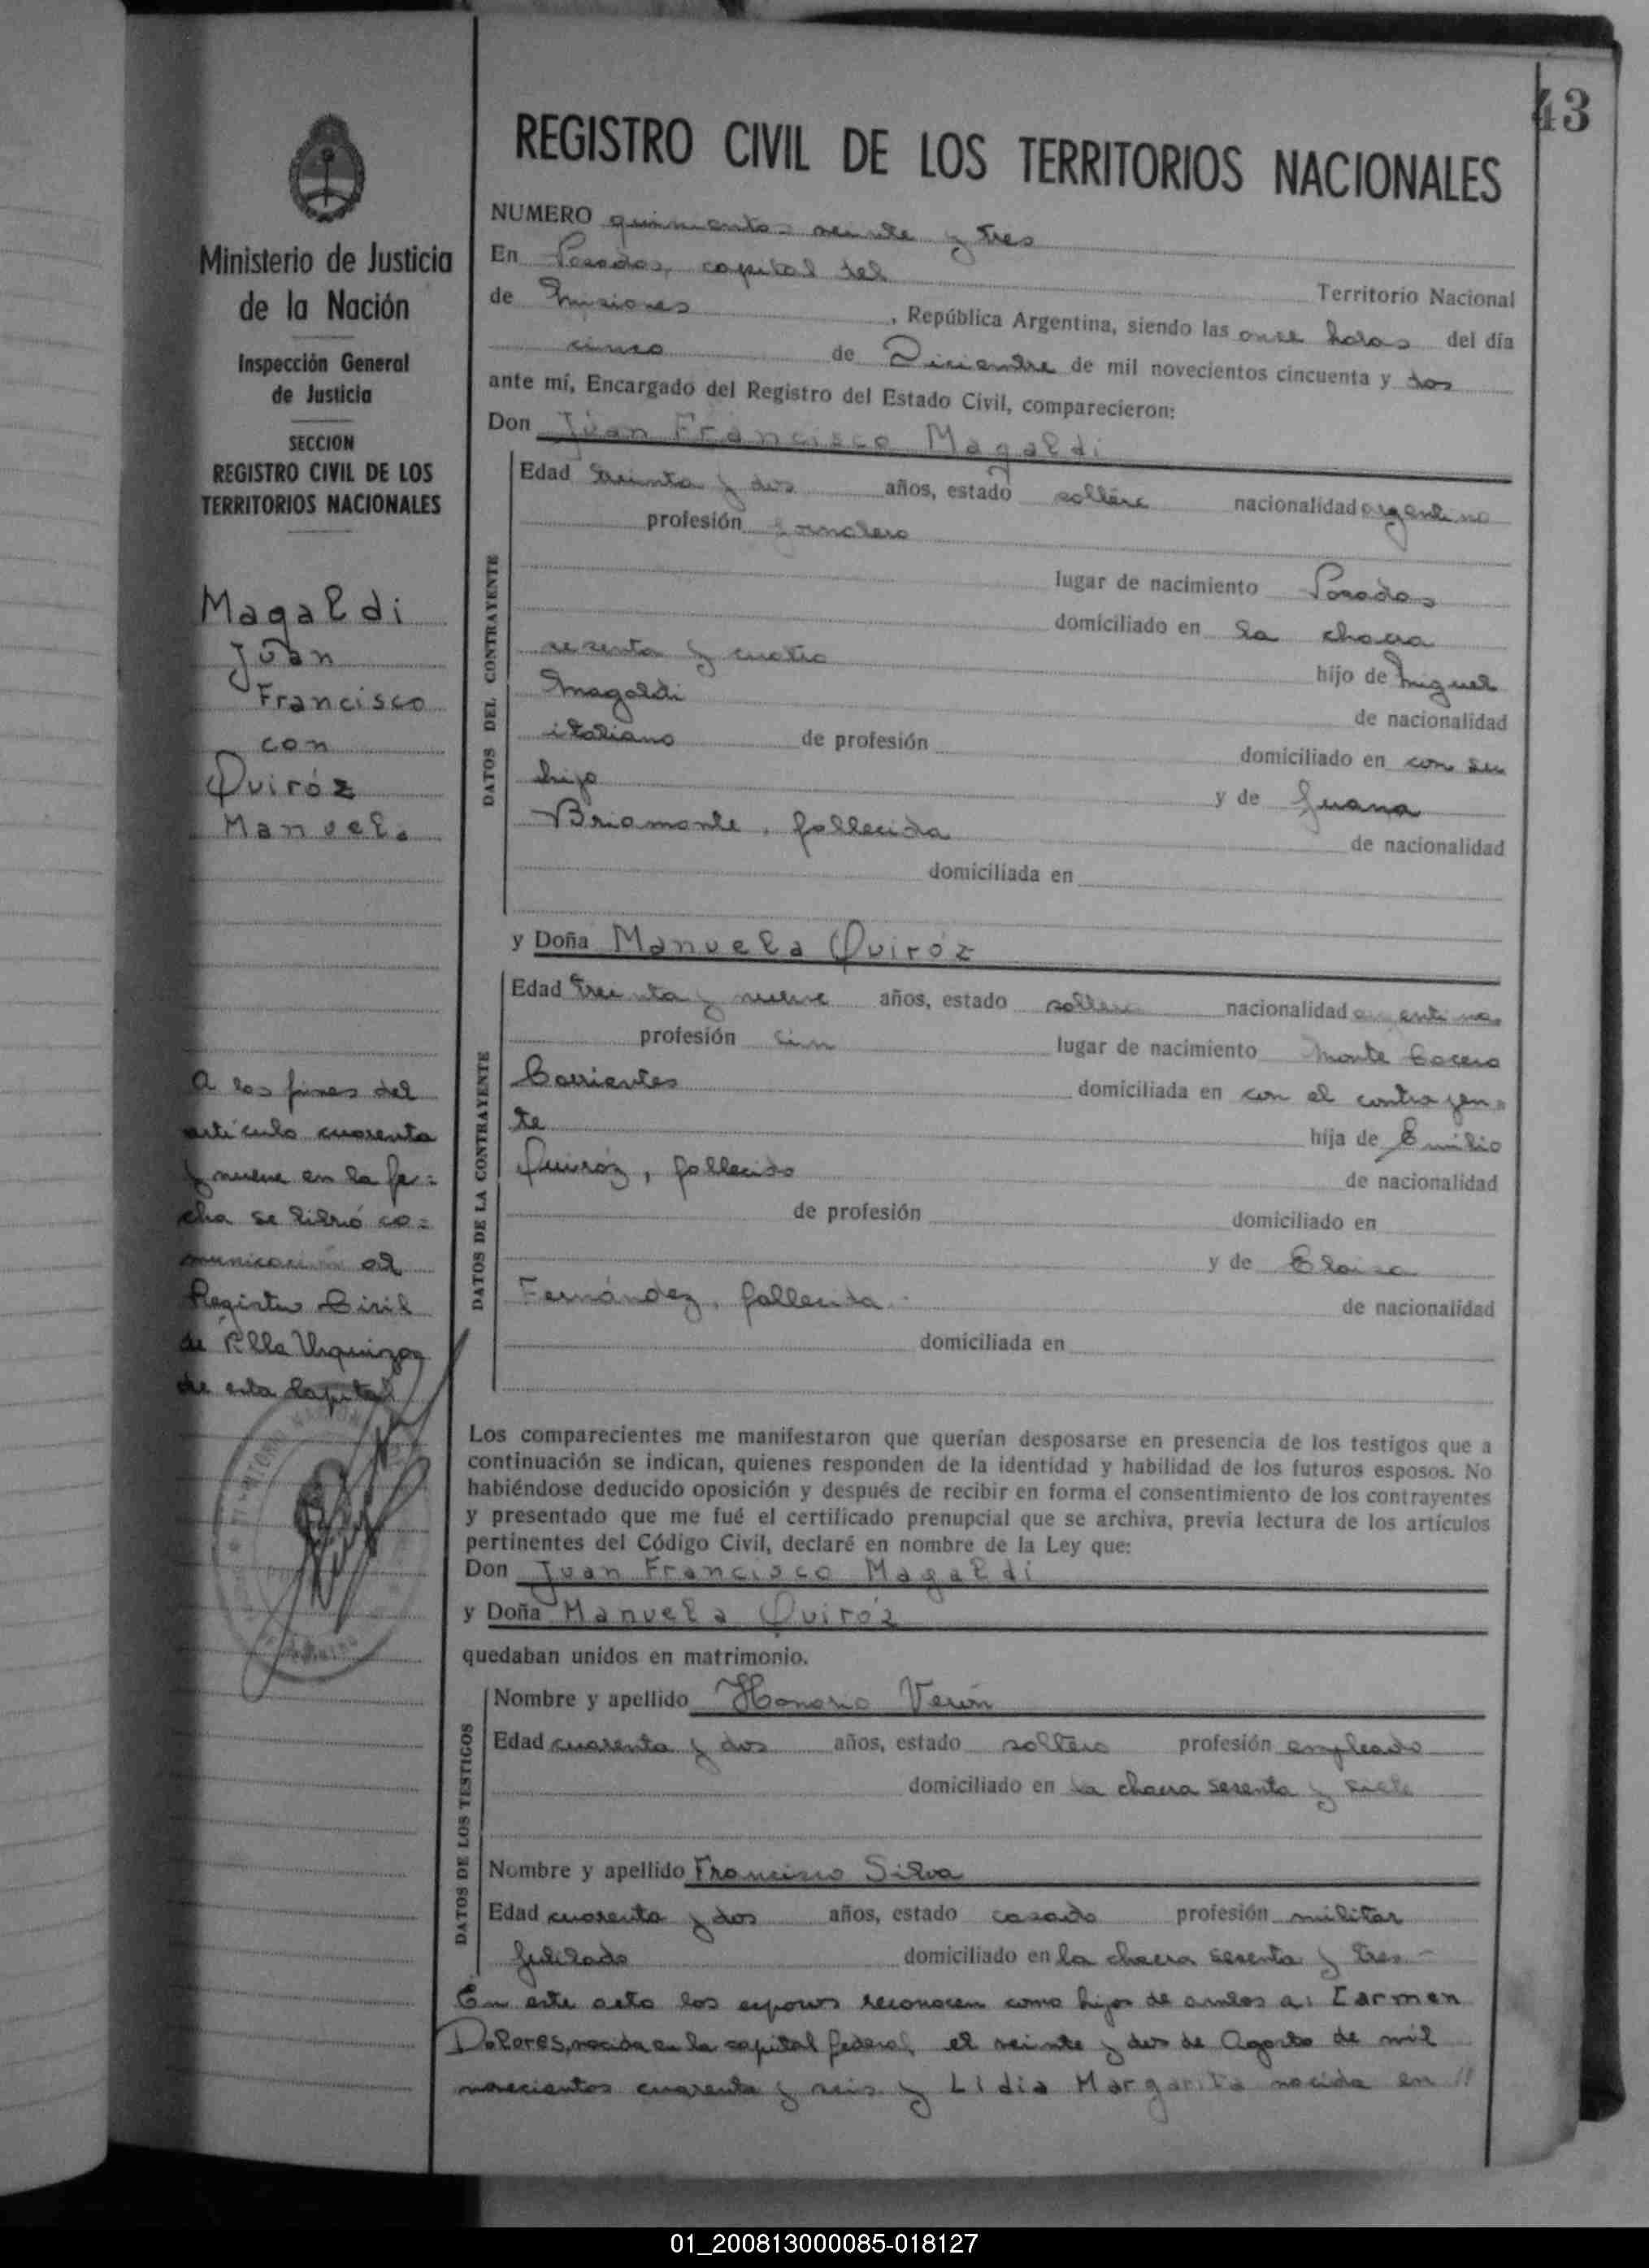 43
REGISTRO CIVIL DE LOS TERRITORIOS NACIONALES
Ministerio de Justicia
de la Nación
Inspección General
de Justicia
SECCION
REGISTRO CIVIL DE LOS
TERRITORIOS NACIONALES
Magaldi
Juan
Francisco
con
Quiróz
Manuela
A los fines del
artículo cuarenta
y nueve en la fe=
cha se libró co=
municación al
Registro Civil
de Villa Urquiza
de esta Capital
NUMERO quinientos veinte y tres
En Posadas, capital del Territorio Nacional
de Misiones, República Argentina, siendo las once horas del día
cinco de Diciembre de mil novecientos cincuenta y dos
ante mí, Encargado del Registro del Estado Civil, comparecieron:
Don Juan Francisco Magaldi
DATOS DEL CONTRAYENTE
Edad treinta y dos años, estado soltero nacionalidad argentino
profesión jornalero
lugar de nacimiento Posadas
domiciliado en la chacra
sesenta y cuatro hijo de Miguel
Magaldi de nacionalidad
italiano de profesión domiciliado en con su
hijo y de Juana
Briamonte, fallecida de nacionalidad
domiciliada en
y Doña Manuela Quiróz
DATOS DE LA CONTRAYENTE
Edad treinta y nueve años, estado soltera nacionalidad argentina
profesión sin lugar de nacimiento Monte Casero
Corrientes domiciliada en con el contrayen=
te hija de Emilio
Quiróz, fallecido de nacionalidad
de profesión domiciliado en
y de Eloisa
Fernández, fallecida. de nacionalidad
domiciliada en
Los comparecientes me manifestaron que querían desposarse en presencia de los testigos que a
continuación se indican, quienes responden de la identidad y habilidad de los futuros esposos. No
habiéndose deducido oposición y después de recibir en forma el consentimiento de los contrayentes
y presentado que me fué el certificado prenupcial que se archiva, previa lectura de los artículos
pertinentes del Código Civil, declaré en nombre de la Ley que:
Don Juan Francisco Magaldi
y Doña Manuela Quiróz
quedaban unidos en matrimonio.
DATOS DE LOS TESTIGOS
Nombre y apellido Honorio Verón
Edad cuarenta y dos años, estado soltero profesión empleado
domiciliado en la chacra sesenta y siete
Nombre y apellido Francisco Silva
Edad cuarenta y dos años, estado casado profesión militar
jubilado domiciliado en la chacra sesenta y tres -
En este acto los esposos reconocen como hijos de ambos a: Carmen
Dolores, nacida en la capital federal, el veinte y dos de Agosto de mil
novecientos cuarenta y seis y Lidia Margarita nacida en //
01_200813000085-018127